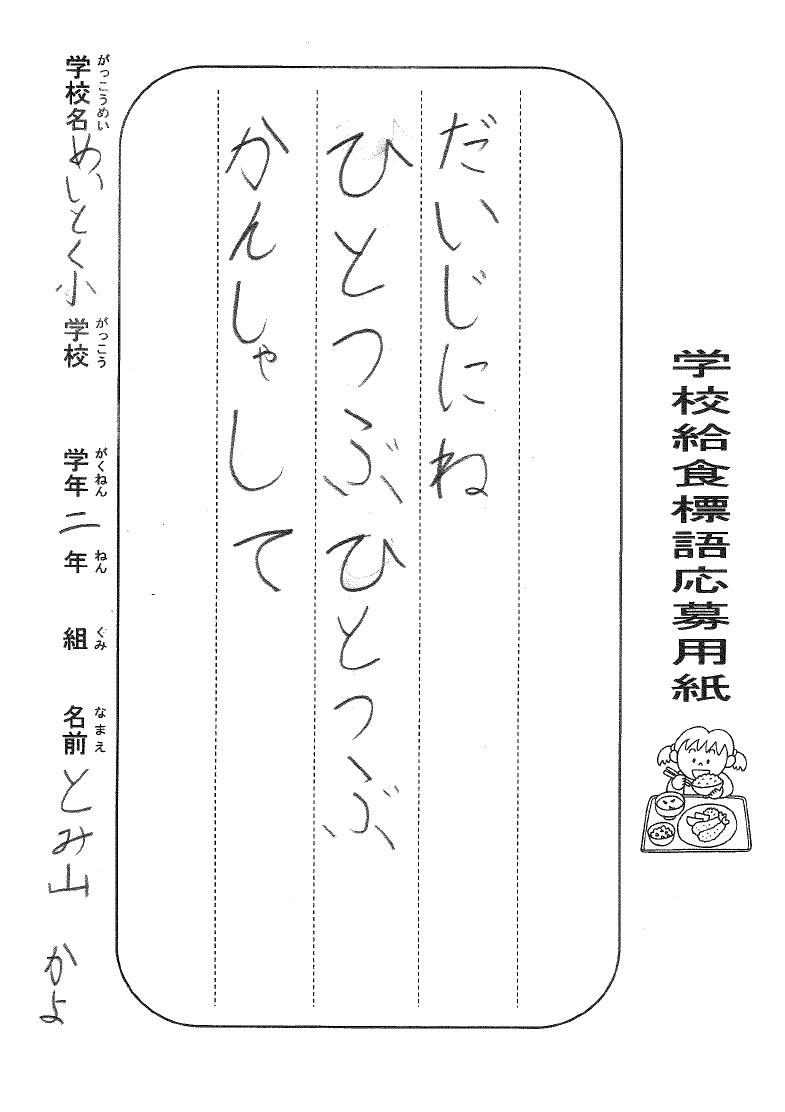 学校給食標語応募用紙
だいじにね
ひとつぶひとつぶ
かんしゃして
学校名 がっこうめい めいとく小 学校 がっこう 学年 がくねん 二 年 ねん 組 くみ 名前 なまえ とみ山 かよ